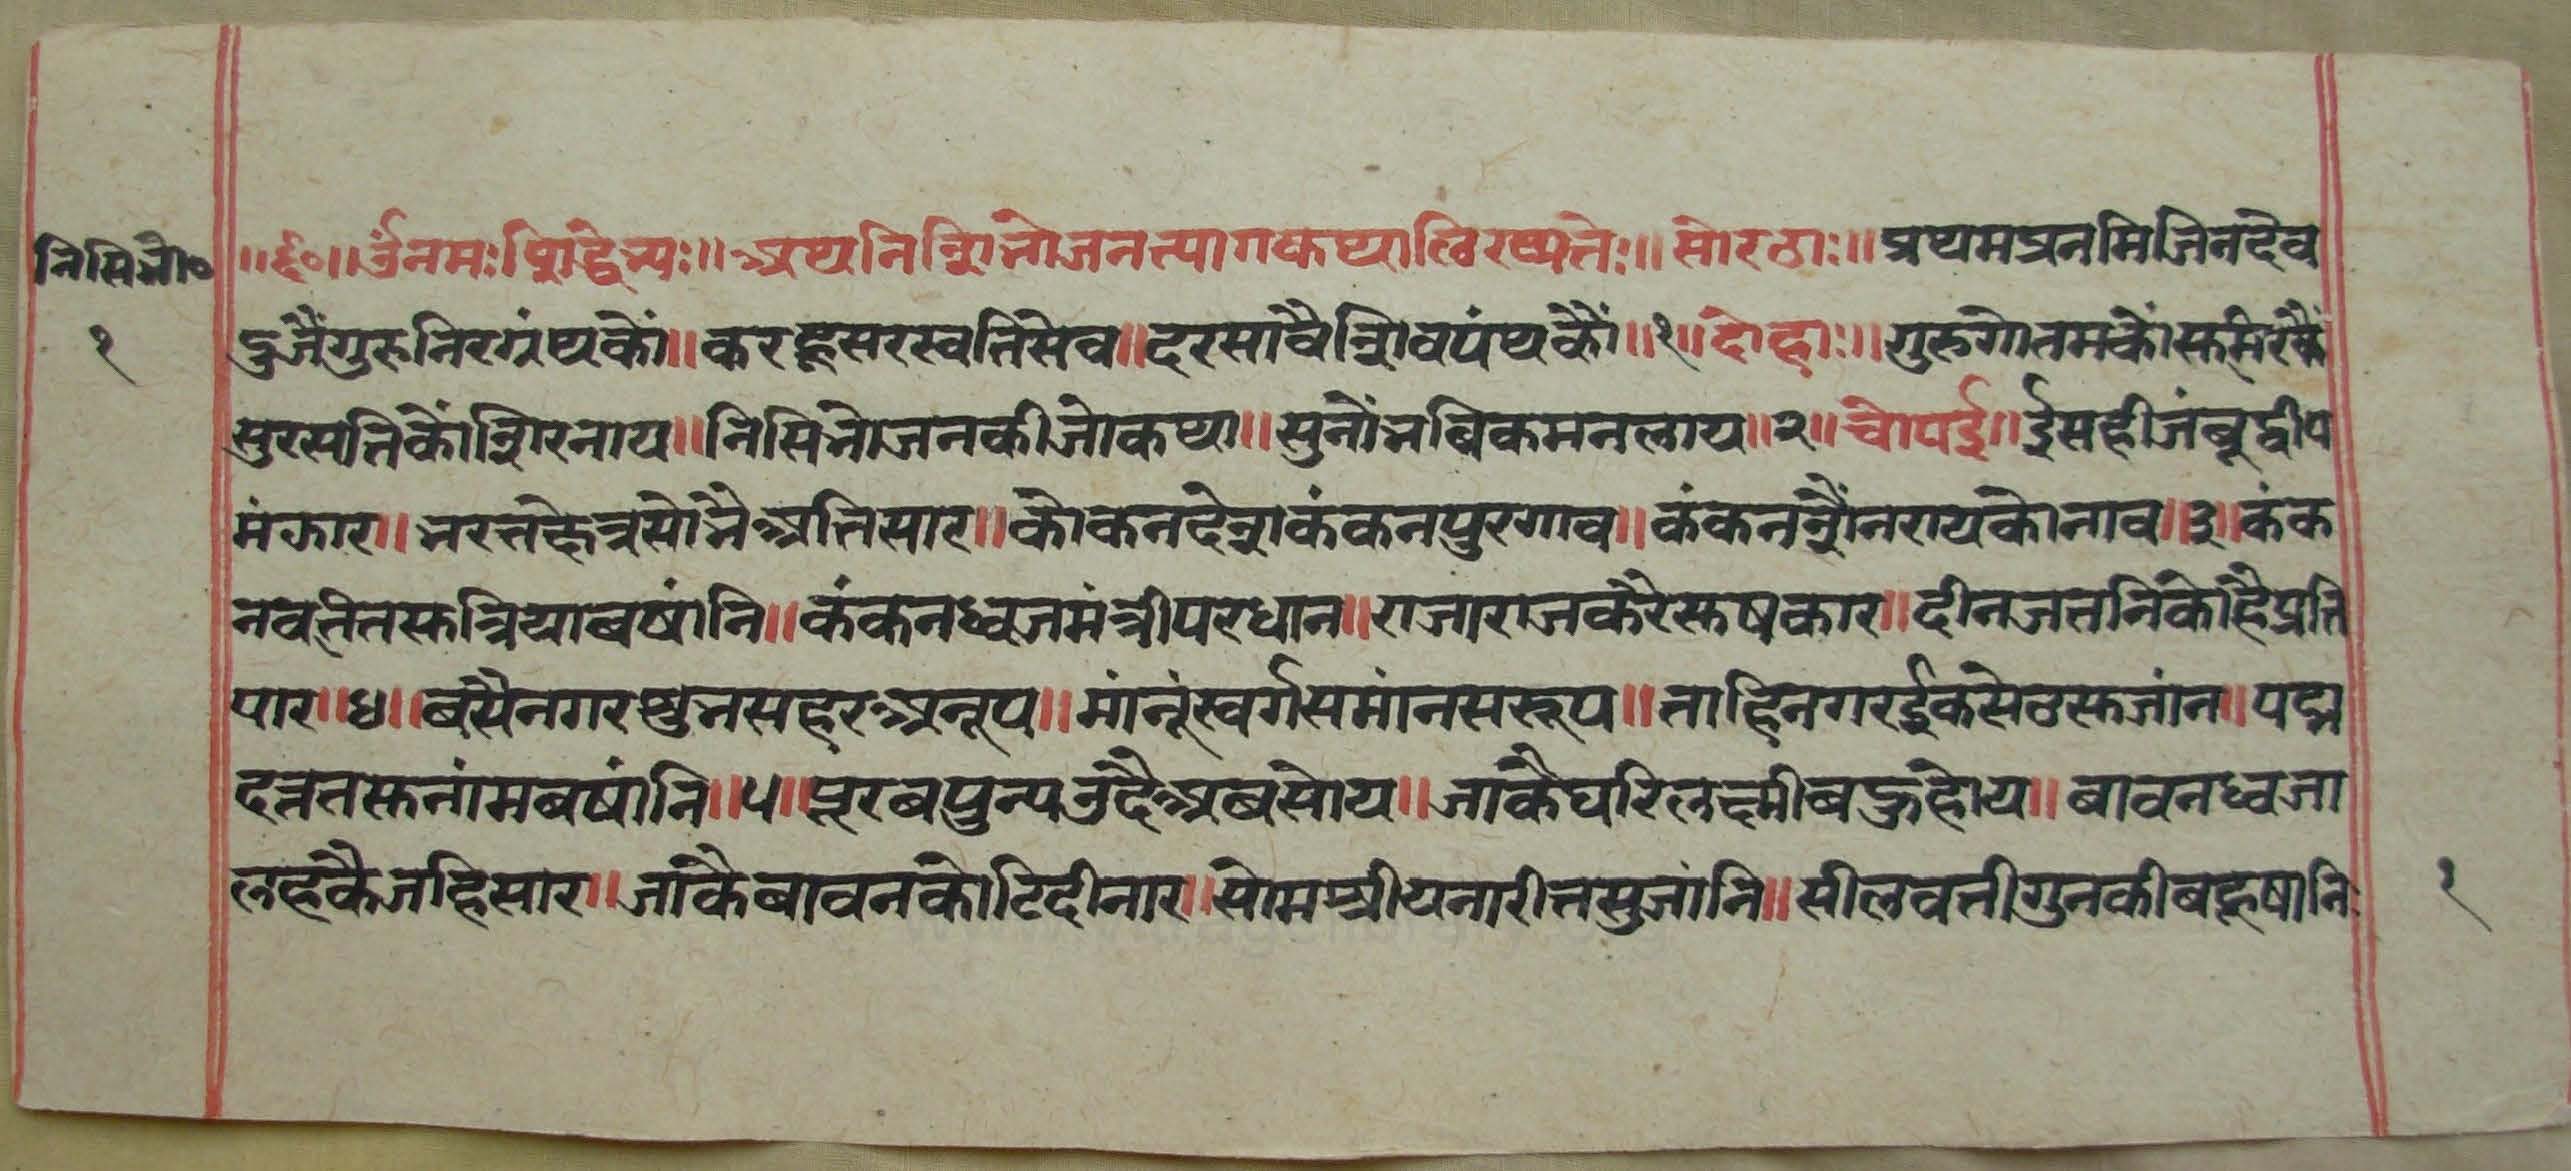 निसिभो० ॥र्द०॥ उँनमः सिद्धेभ्यः॥ अथनिशिभोजनत्यागकथालिख्यतेः॥ सोरठाः॥ प्रथमप्रनमिजिनदेव
१ दुजैंगुरुनिरग्रंथकों॥ करहूसरस्वतिसेव॥ दरसावैशिवपंथकौं॥१॥ दोहाः॥ गुरुगोतमकोंस्तमिरकैं
सुरसतिकौंशिरनाय॥ निसिभोजनकीजोकथा॥ सुनौंभबिकमनलाय॥२॥ चोपई॥ ईसहीजंबूद्वीप
मंझार॥ भरतक्षेत्रसोभैअतिसार॥ कोकनदेशकंकनपुरगाव॥ कंकनशैंनरायकोनाव॥३॥ कंक
नवतीतस्तत्रियाबषांनि॥ कंकनध्वजमंत्रीपरधान॥ राजाराजकरैस्तषकार॥ दीनजतनिकोहैप्रति
पार॥४॥ बसैनगरशुभसहरअनूप॥ मांनूंस्वर्गसमांनसरूप॥ ताहिनगरईकसेठस्तजांन॥ पद्म
दत्ततस्तनांमबषांनि॥५॥ पूरबपुन्यउदैअबसोय॥ जाकैघरिलक्ष्मीबहुहोय॥ बावनध्वजा
लहकैजहिसार॥ जाकैबावनकोटिदीनार॥ सोमश्रीयनारीतसुजांनि॥ सीलवतीगुनकीबहूषानि १